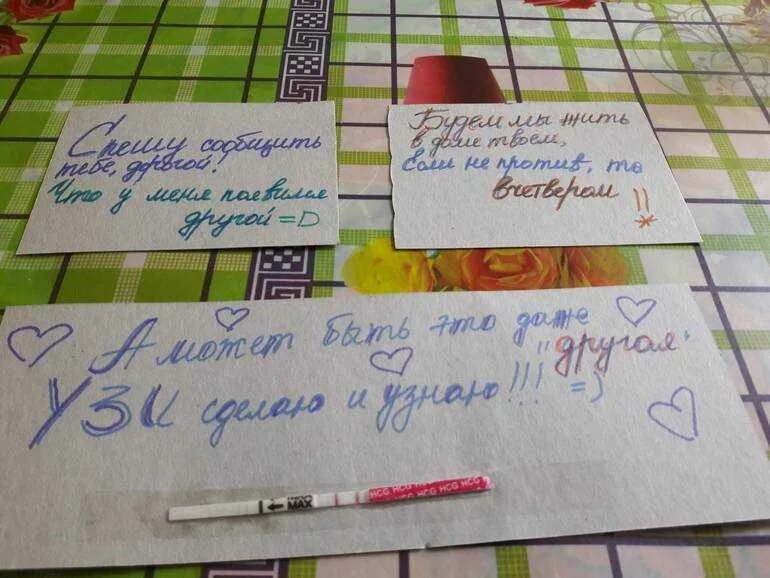 Спешу сообщить
тебе, дорогой!
Что у меня появился
другой =D
Будем мы жить
в доме твоем,
Если не против, то
вчетвером !!
*
А может быть это даже
"другая"
УЗИ сделаю и узнаю!!! =)
MAX
HCG HCG HCG HCG HCG